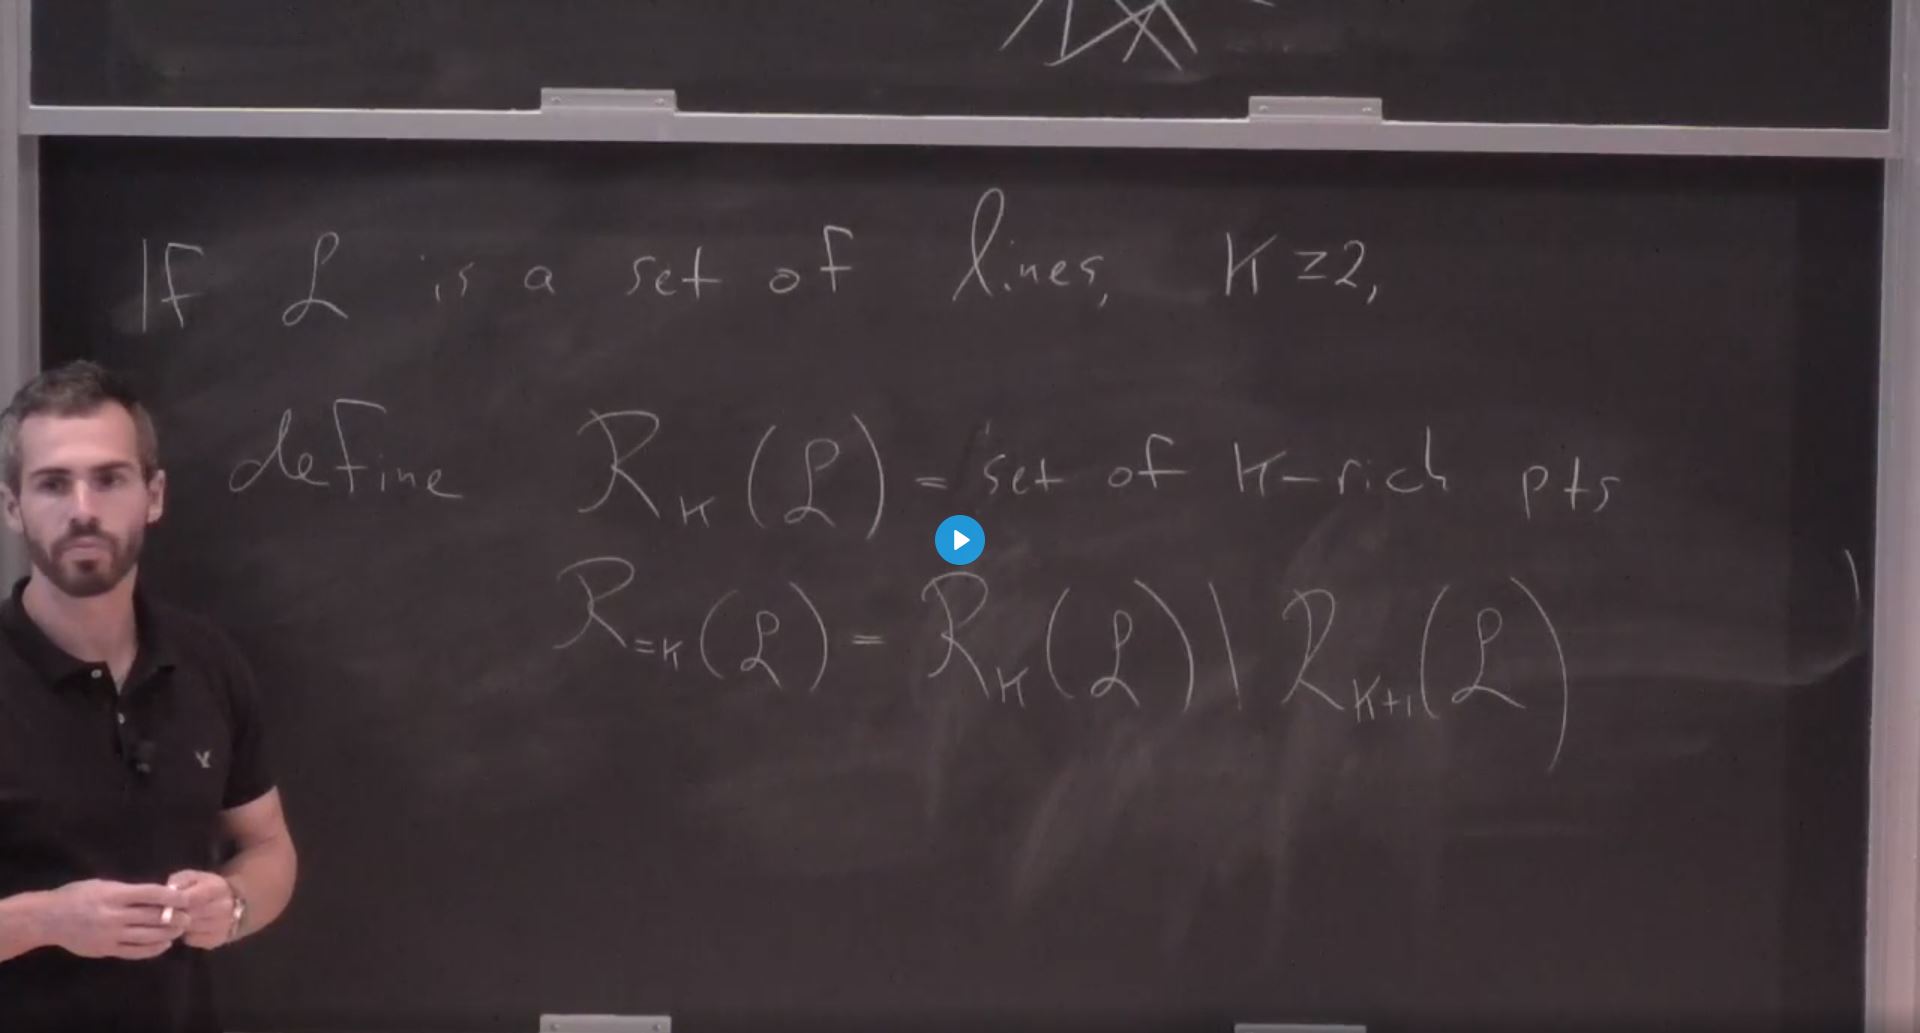 If ℒ is a set of lines, K ≥ 2,
define R_K(ℒ) = set of K-rich pts
R_{=K}(ℒ) = R_K(ℒ) \ R_{K+1}(ℒ)